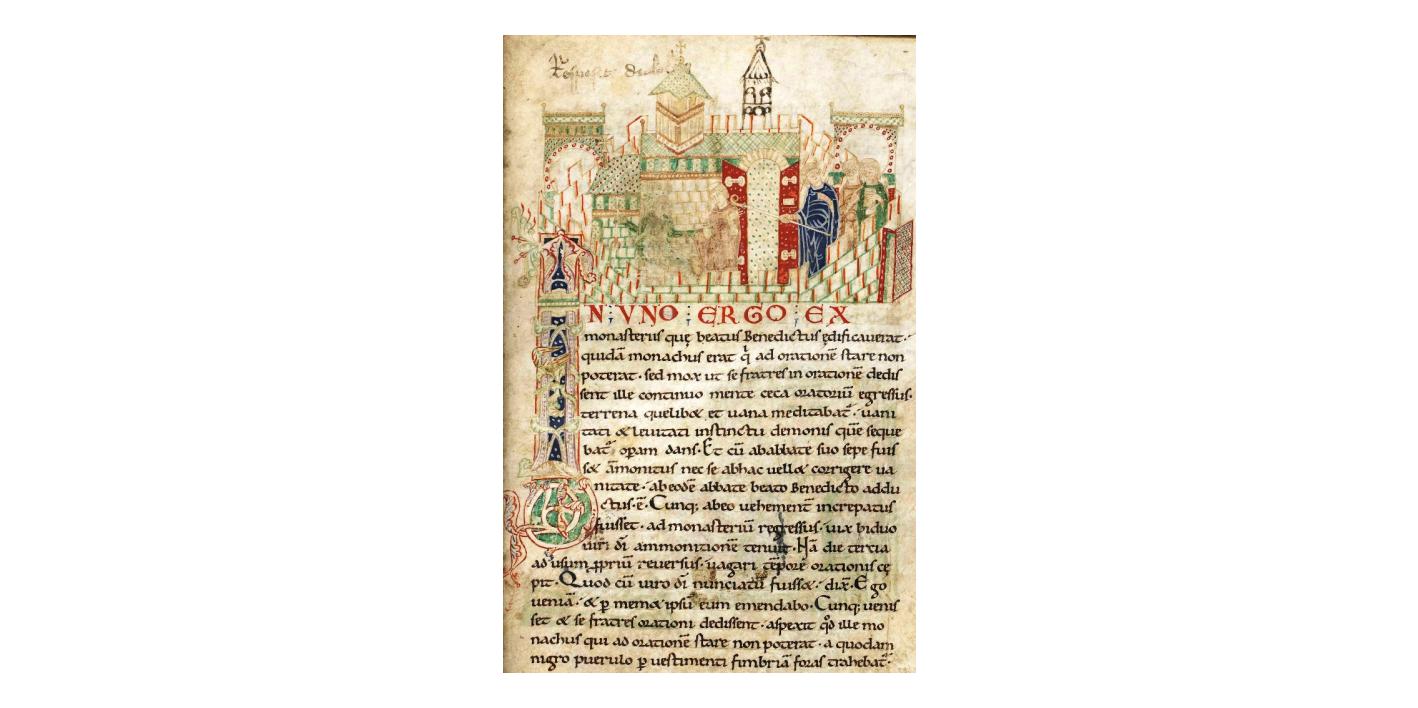 IN : VNO : ERGO : EX
monasteriis quę beatus Benedictus ędificauerat·
quidā monachus erat q̇ ad orationē stare non
poterat· sed mox ut se fratres in orationē dedis
sent ille continuo mente ceca oratoriū egressus·
terrena quelibet et uana meditabat̄· uani
tati & leuitati instinctu demonis quē seque
bat̄ opam dans· Et cū ab abbate suo sepe fuis
s& āmonitus nec se ab hac uell& corrigere ua
nitate· ab eodē abbate beato Benedicto addu
ctus·ē· Cunq; ab eo uehement̄ increpatus
fuisset· ad monasteriū regressus· uix biduo
uiri dī ammonitionē tenuit· Nā die tertia
ad usum ꝓpriū reuersus· uagari tēpore orationis cę
pit· Quod cū uiro dī nunciatū fuiss&· dix̄· Ego
ueniā· & ꝑ mem& ipsū eum emendabo· Cunq; uenis
set & se fratres orationi dedissent· aspexit qd̄ ille mo
nachus qui ad orationē stare non poterat· a quodam
nigro puerulo ꝑ uestimenti fimbriā foras trahebat̄·